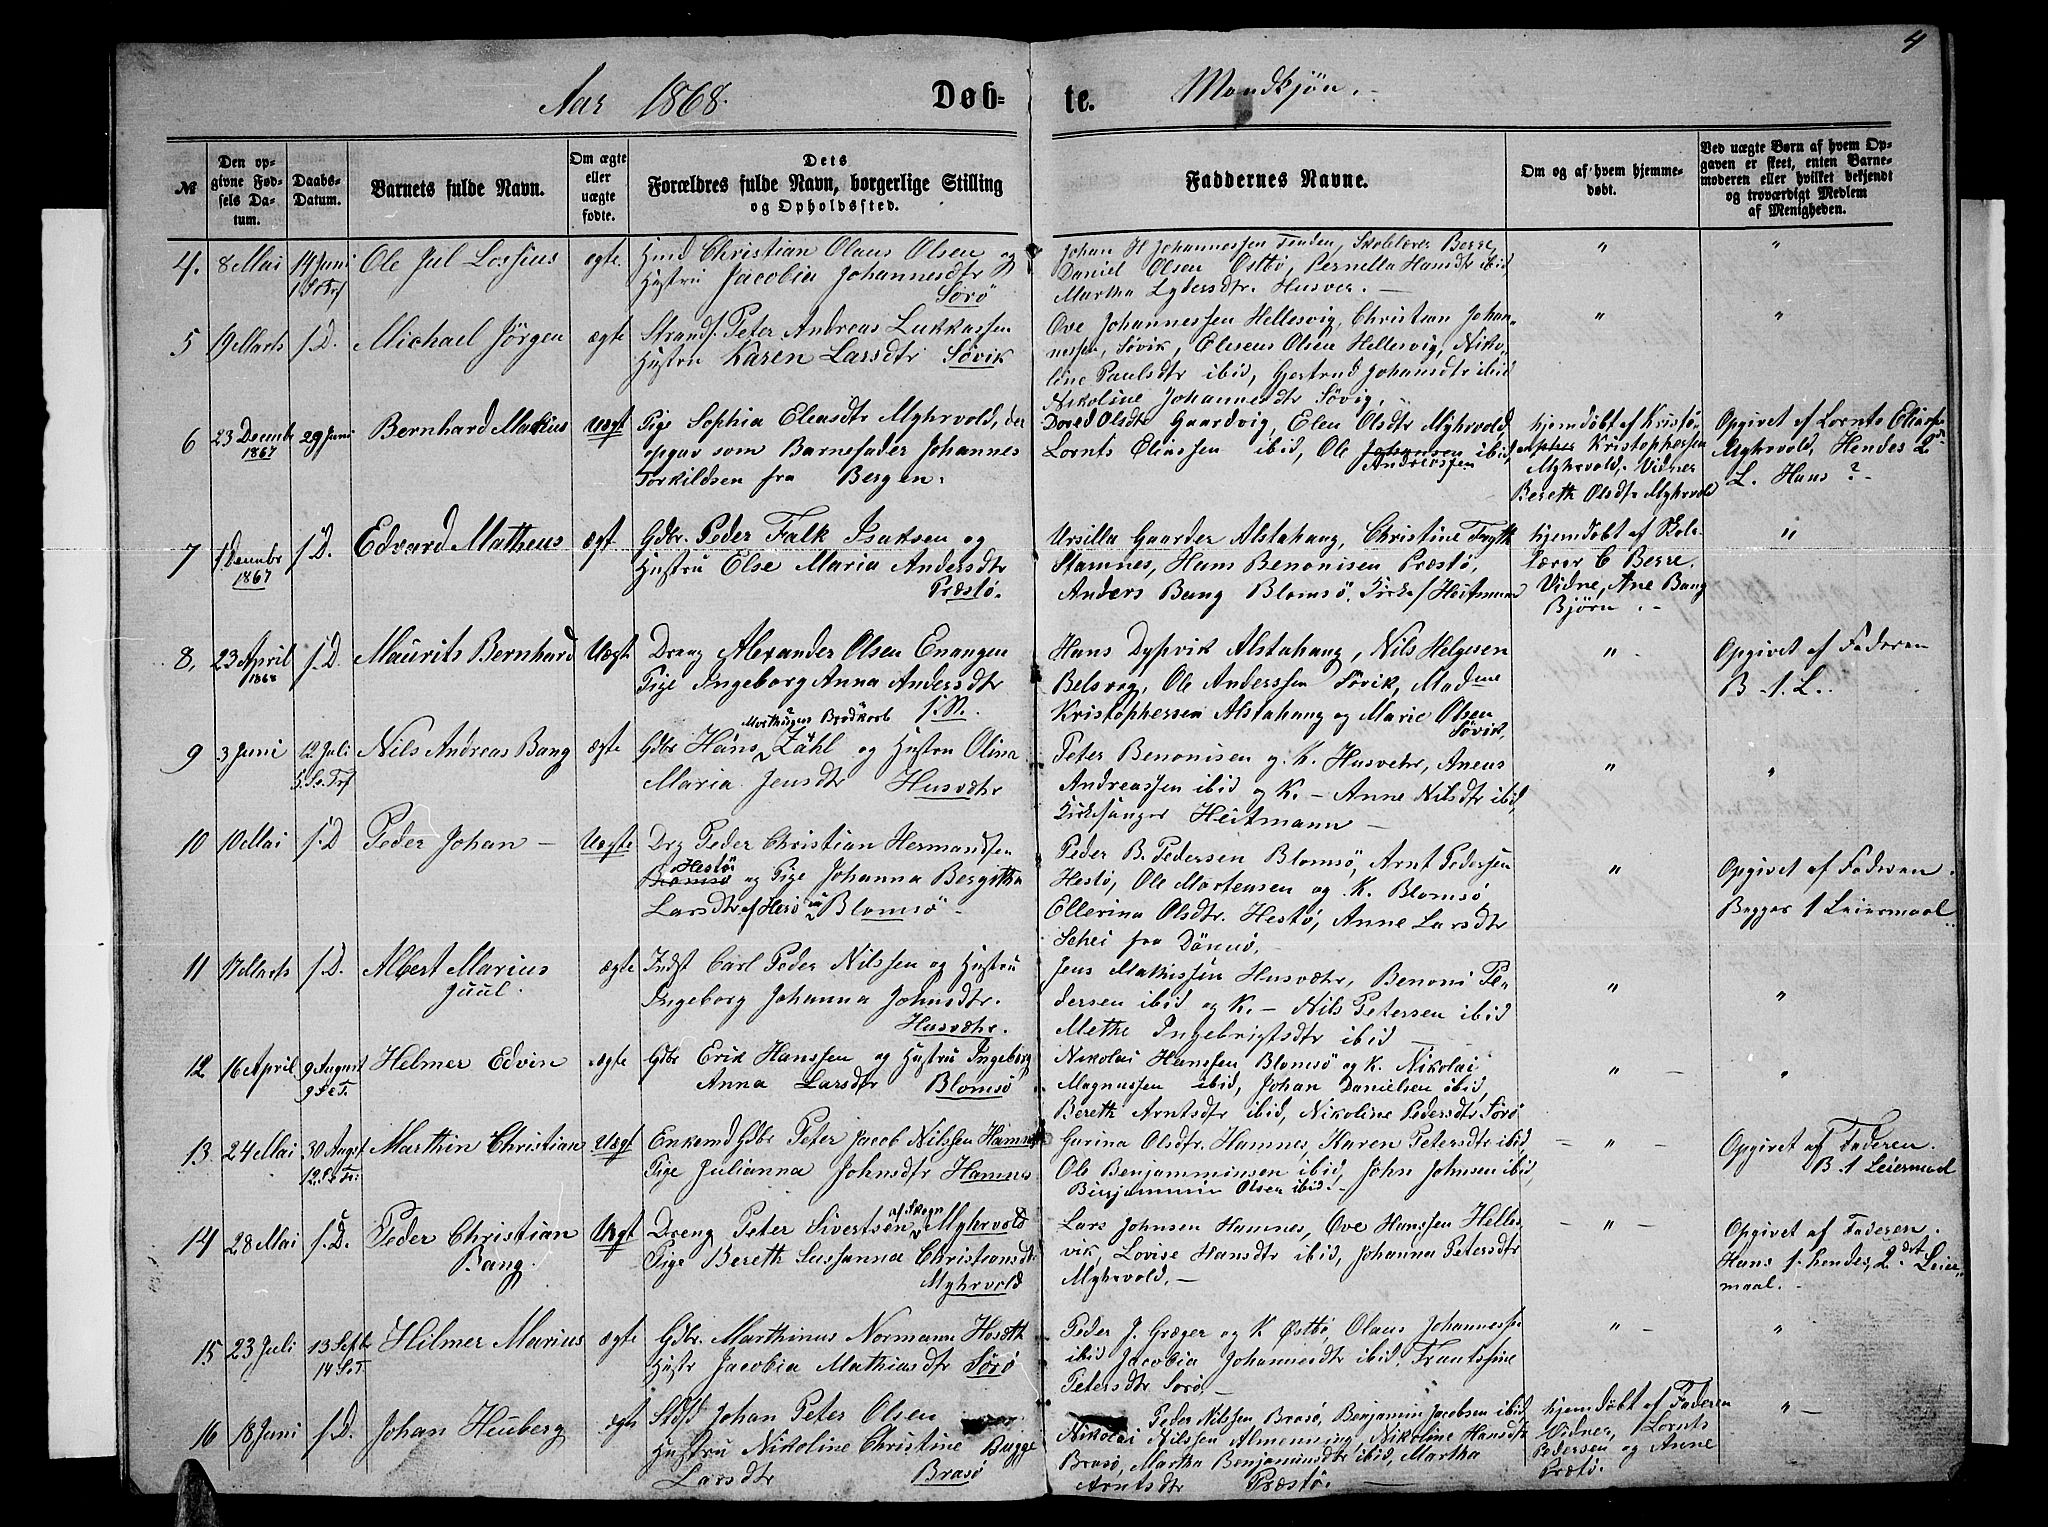 4
Aar 1868.
Døb-
te.
Mandkjøn.
№
Den op-
givne Fød-
sels Da-
tum.
Daabs-
Datum.
Barnets fulde Navn.
Om ægte
eller
uægte
fødte.
Dets
Forældres fulde Navn, borgerlige Stilling
og Opholdssted.
Faddernes Navne.
Om og af hvem hjemme-
døbt.
Ved uægte Børn af hvem Op-
gaven er skeet, enten Barne-
moderen eller hvilket bekjendt
og troværdigt Medlem
af Menigheden.
4.
8 Mai
14 Juni
Ole Jul Lossius
ægte
Christian Olaus Olsen og
Hustru Jacobia Johannesdtr
Sørø
Johan H Johannessen Skolelærer Berre,
Daniel Olsen Østbø, Pernella Hansdtr ibid
Martha Lydersdtr. Husver. –
"
"
5
19 Marts
s. D.
Michael Jörgen
ægte
Strands. Peter Andreas Lukkassen
Hustru Karen Larsdtr Søvik
Ove Johannessen Hellesvig, Christian Johan-
nessen, Søvik, Eliseus Olsen Hellesvig, Niko-
line Paulsdtr ibid, Gjertrud Johansdtr ibid
Nikoline Johannesdtr Søvig.
"
"
6
23 Decembr
1867
29 Juni
Bernhard Makius
Uægt
Pige Sophia Eleasdtr Myhrvold, der
opgav som Barnefader Johannes
Torkildsen fra Bergen.
Dored Olsdtr Gaardvig, Elen Olsdtr Myhrvold
Lornts Eliassen ibid, Ole Johansen ibid,
Andreassen
hjemdøbt af Kristo-
Kristophersen
Myhrvold. Vidner
Bereth Olsdtr Myhrvold
Opgivet af Lornts Eliass.
Myhrvold, Hendes 2
L. Hans ? –
7
1 Decembr
1867
s. D.
Edvard Matheus
ægt
Gdbr. Peder Falk Isaksen og
Hustru Else Maria Andersdtr
Præstø.
Ursilla Gaarder Alstahaug, Christine
Stamnes, Hans Benonisen Præstø,
Anders Bang Blomsø. Kirkes. Heitmann
hjemdøbt af Skol-
lærer C Berre.
Vidne, Ane Bang
Bjørn. –
"
8,
23 April
1868
s. D.
Maurits Bernhard
Uægt
Dreng Alexander Olsen Enangen
Pige Ingeborg Anna Andersdtr
s. St.
Hans Dypvik Alstahaug, Nils Helgesen
Belsvag, Ole Anderssen Søvik, Madme
Kristophersen Alstahaug og Marie Olsen
Søvik,
"
Opgivet af Faderen
B 1. L.
9
3 Juni
12 Juli
5. S. Trf
Nils Andreas Bang
ægte
Brodkorb
Gdbr Hans Zahl og Hustru Olina
Maria Jensdtr Husvæhr
Peter Benonisen og K. Husvehr, Aneus
Andreassen ibid og K. – Anne Nilsdtr ibid,
Kirkesanger Heitmann –
"
"
10
10 Mai
s. D
Peder Johan –
Uægte
Drg Peder Christian Hermandsen
Hestø
Blomsø og Pige Johanna Bergitha
Larsdtr af Herø nu Blomsø –
Peder B. Pedersen Blomsø, Arnt Pedersen
Hestø, Ole Mortensen og K. Blomsø
Ellerina Olsdtr. Hestø, Anne Larsdtr
Schei fra Dönnø,
"
Opgivet af Faderen.
Begges 1 Leiermaal
11
17 Marts
s. D.
Albert Marius
Juul.
ægte
Indst Carl Peder Nilssen og Hustru
Ingeborg Johanna Johnsdtr.
Husvæhr.
Jens Mathissen Husvæhr, Benoni Pe-
dersen ibid og K. – Nils Petersen ibid
Methe Ingebrigtsdtr ibid –
"
"
12
16 April
9 August
9 S. e. T.
Helmer Edvin
ægte
Gdbr Erik Hanssen og Hustru Ingeborg
Anna Larsdtr Blomsø
Nikolai Hanssen Blomsø og K. Nikolai
Magnussen ibid, Johan Danielsen ibid,
Bereth Arntsdtr ibid, Nikoline Pedersdtr Sørø
"
"
13.
24 Mai
30 Augst
12. S. Tr.
Marthin Christian
Uægt
Enkemd Gdbr Peter Jacob Nilssen Hamnes
Pige Julianna Johnsdtr Hamnes
Gurina Olsdtr. Hamnes, Karen Petersdtr ibid,
Ole Benjaminsen ibid, John Johnsen ibid,
Binjammin Olsen ibid. –
– " –
Opgivet af Faderen.
B. 1 Leiermaal
14
28 Mai
s. D.
Peder Christian
Bang.
Uægt
af Skogn
Dreng Peter Sivertsen Myhrvold
Pige Bereth Sussanna Christiansdtr
Myhrvold
Lars Johnsen Hamnes, Ove Hanssen Helles-
vik, Lovise Hansdtr ibid, Johanna Petersdtr
Myhrvold. –
– " –
Opgivet af Faderen.
Hans 1. hendes 2det Leier-
maal. –
15
23 Juli
13 Septbr
14 S. e. T
Hilmer Marius
ægte
Gdbr. Marthinus Normann
Hustr Jacobia Mathiasdtr Sørø
Peder J. Græger og K Østbø, Olaus Johannessen
ibid Jacobia Johannesdtr ibid,
Petersdtr Sørø. –
"
"
16
18 Juni
s. D.
Johan Heuberg
ægte
Johan Peter Olsen
Hustru Nikoline Christine Bugge
Larsdtr Brasø
Peder Nilssen Brasø, Benjamin Jacobsen ibid,
Nikolai Nilssen Almenning, Nikoline Hansdtr
Brasø, Martha Benjaminsdtr ibid, Martha
Arntsdtr Præstø. –
hjemdøbt af Faderen
Vidner, Lornts
Pedersen og Anne
Præstø.
" –